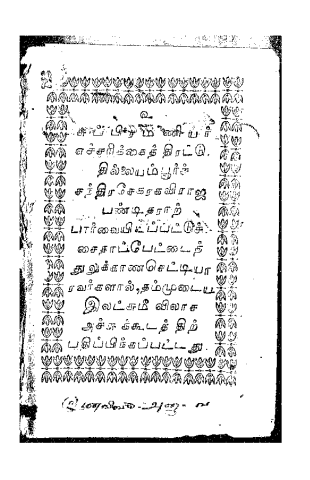 உ
சுப்பிரமணியர்
எச்சரிக்கைத் திரட்டு.
தில்லையம்பூர்ச்
சந்திரசேகரகவிராஜ
பண்டிதராற்
பார்வையிடப்பட்டுச்
சைதாப்பேட்டை
துலுக்காணசெட்டியா
ரவர்களால், தம்முடைய
இலட்சுமீ விலாச
அச்சுக்கூடத் திற்
பதிப்பிக்கப்பட்டது.